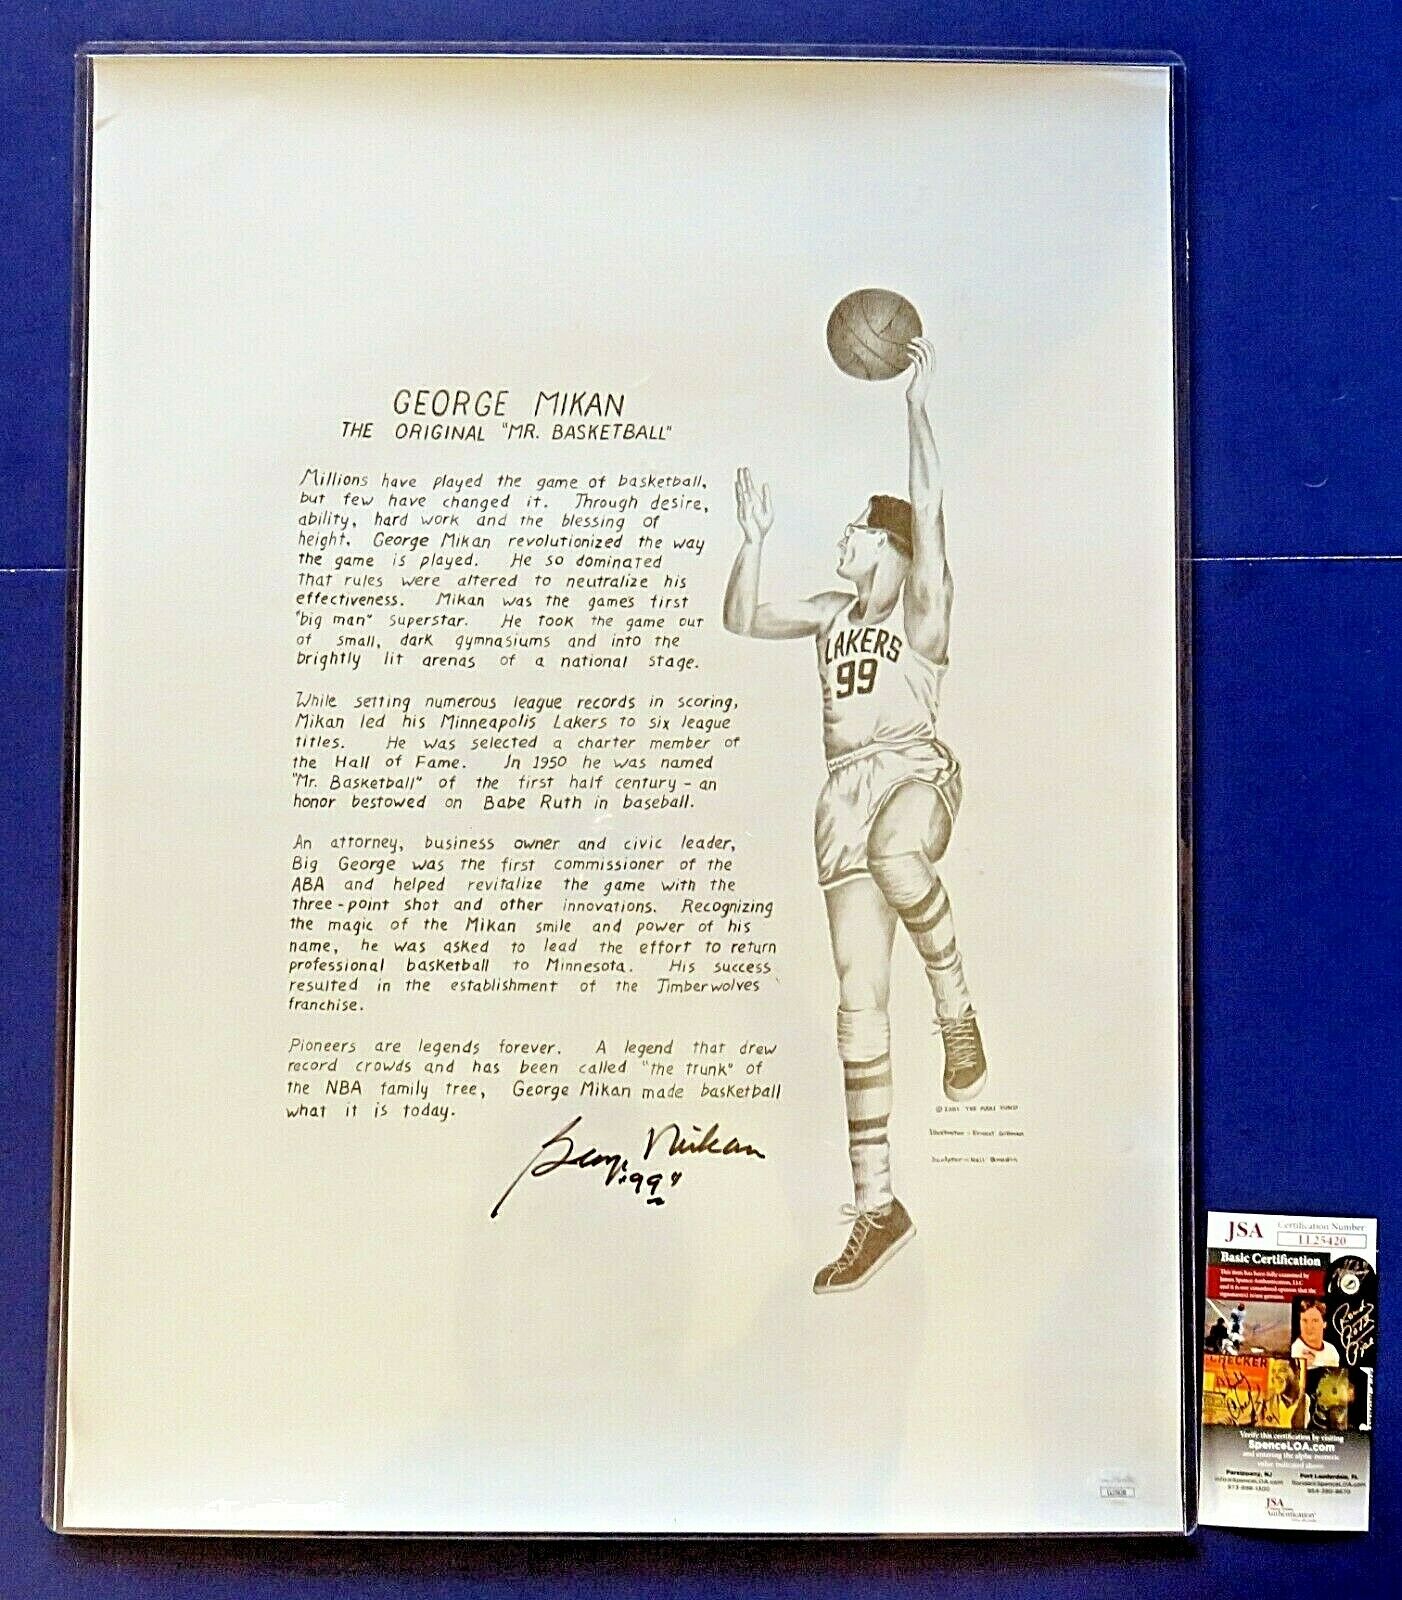 GEORGE MIKAN
THE ORIGINAL "MR. BASKETBALL"
Millions have played the game of basketball,
but few have changed it. Through desire,
ability, hard work and the blessing of
height, George Mikan revolutionized the way
the game is played. He so dominated
that rules were altered to neutralize his
effectiveness. Mikan was the game's first
"big man" superstar. He took the game out
of small, dark gymnasiums and into the
brightly lit arenas of a national stage.
While setting numerous league records in scoring,
Mikan led his Minneapolis Lakers to six league
titles. He was selected a charter member of
the Hall of Fame. In 1950 he was named
"Mr. Basketball" of the first half century - an
honor bestowed on Babe Ruth in baseball.
An attorney, business owner and civic leader,
Big George was the first commissioner of the
ABA and helped revitalize the game with the
three-point shot and other innovations. Recognizing
the magic of the Mikan smile and power of his
name, he was asked to lead the effort to return
professional basketball to Minnesota. His success
resulted in the establishment of the Timberwolves
franchise.
Pioneers are legends forever. A legend that drew
record crowds and has been called "the trunk" of
the NBA family tree, George Mikan made basketball
what it is today.
George Mikan
"99"
LAKERS
99
JSA
Certification Number
LL25420
Basic Certification
This item has been fully examined by
James Spence Authentication, LLC
and it is our considered opinion that the
signature(s) is/are genuine.
CHECKER
Verify this certification by visiting
SpenceLOA.com
and entering the alpha numeric
value indicated above
Parsippany, NJ
Fort Lauderdale, FL
JSA
Authentication